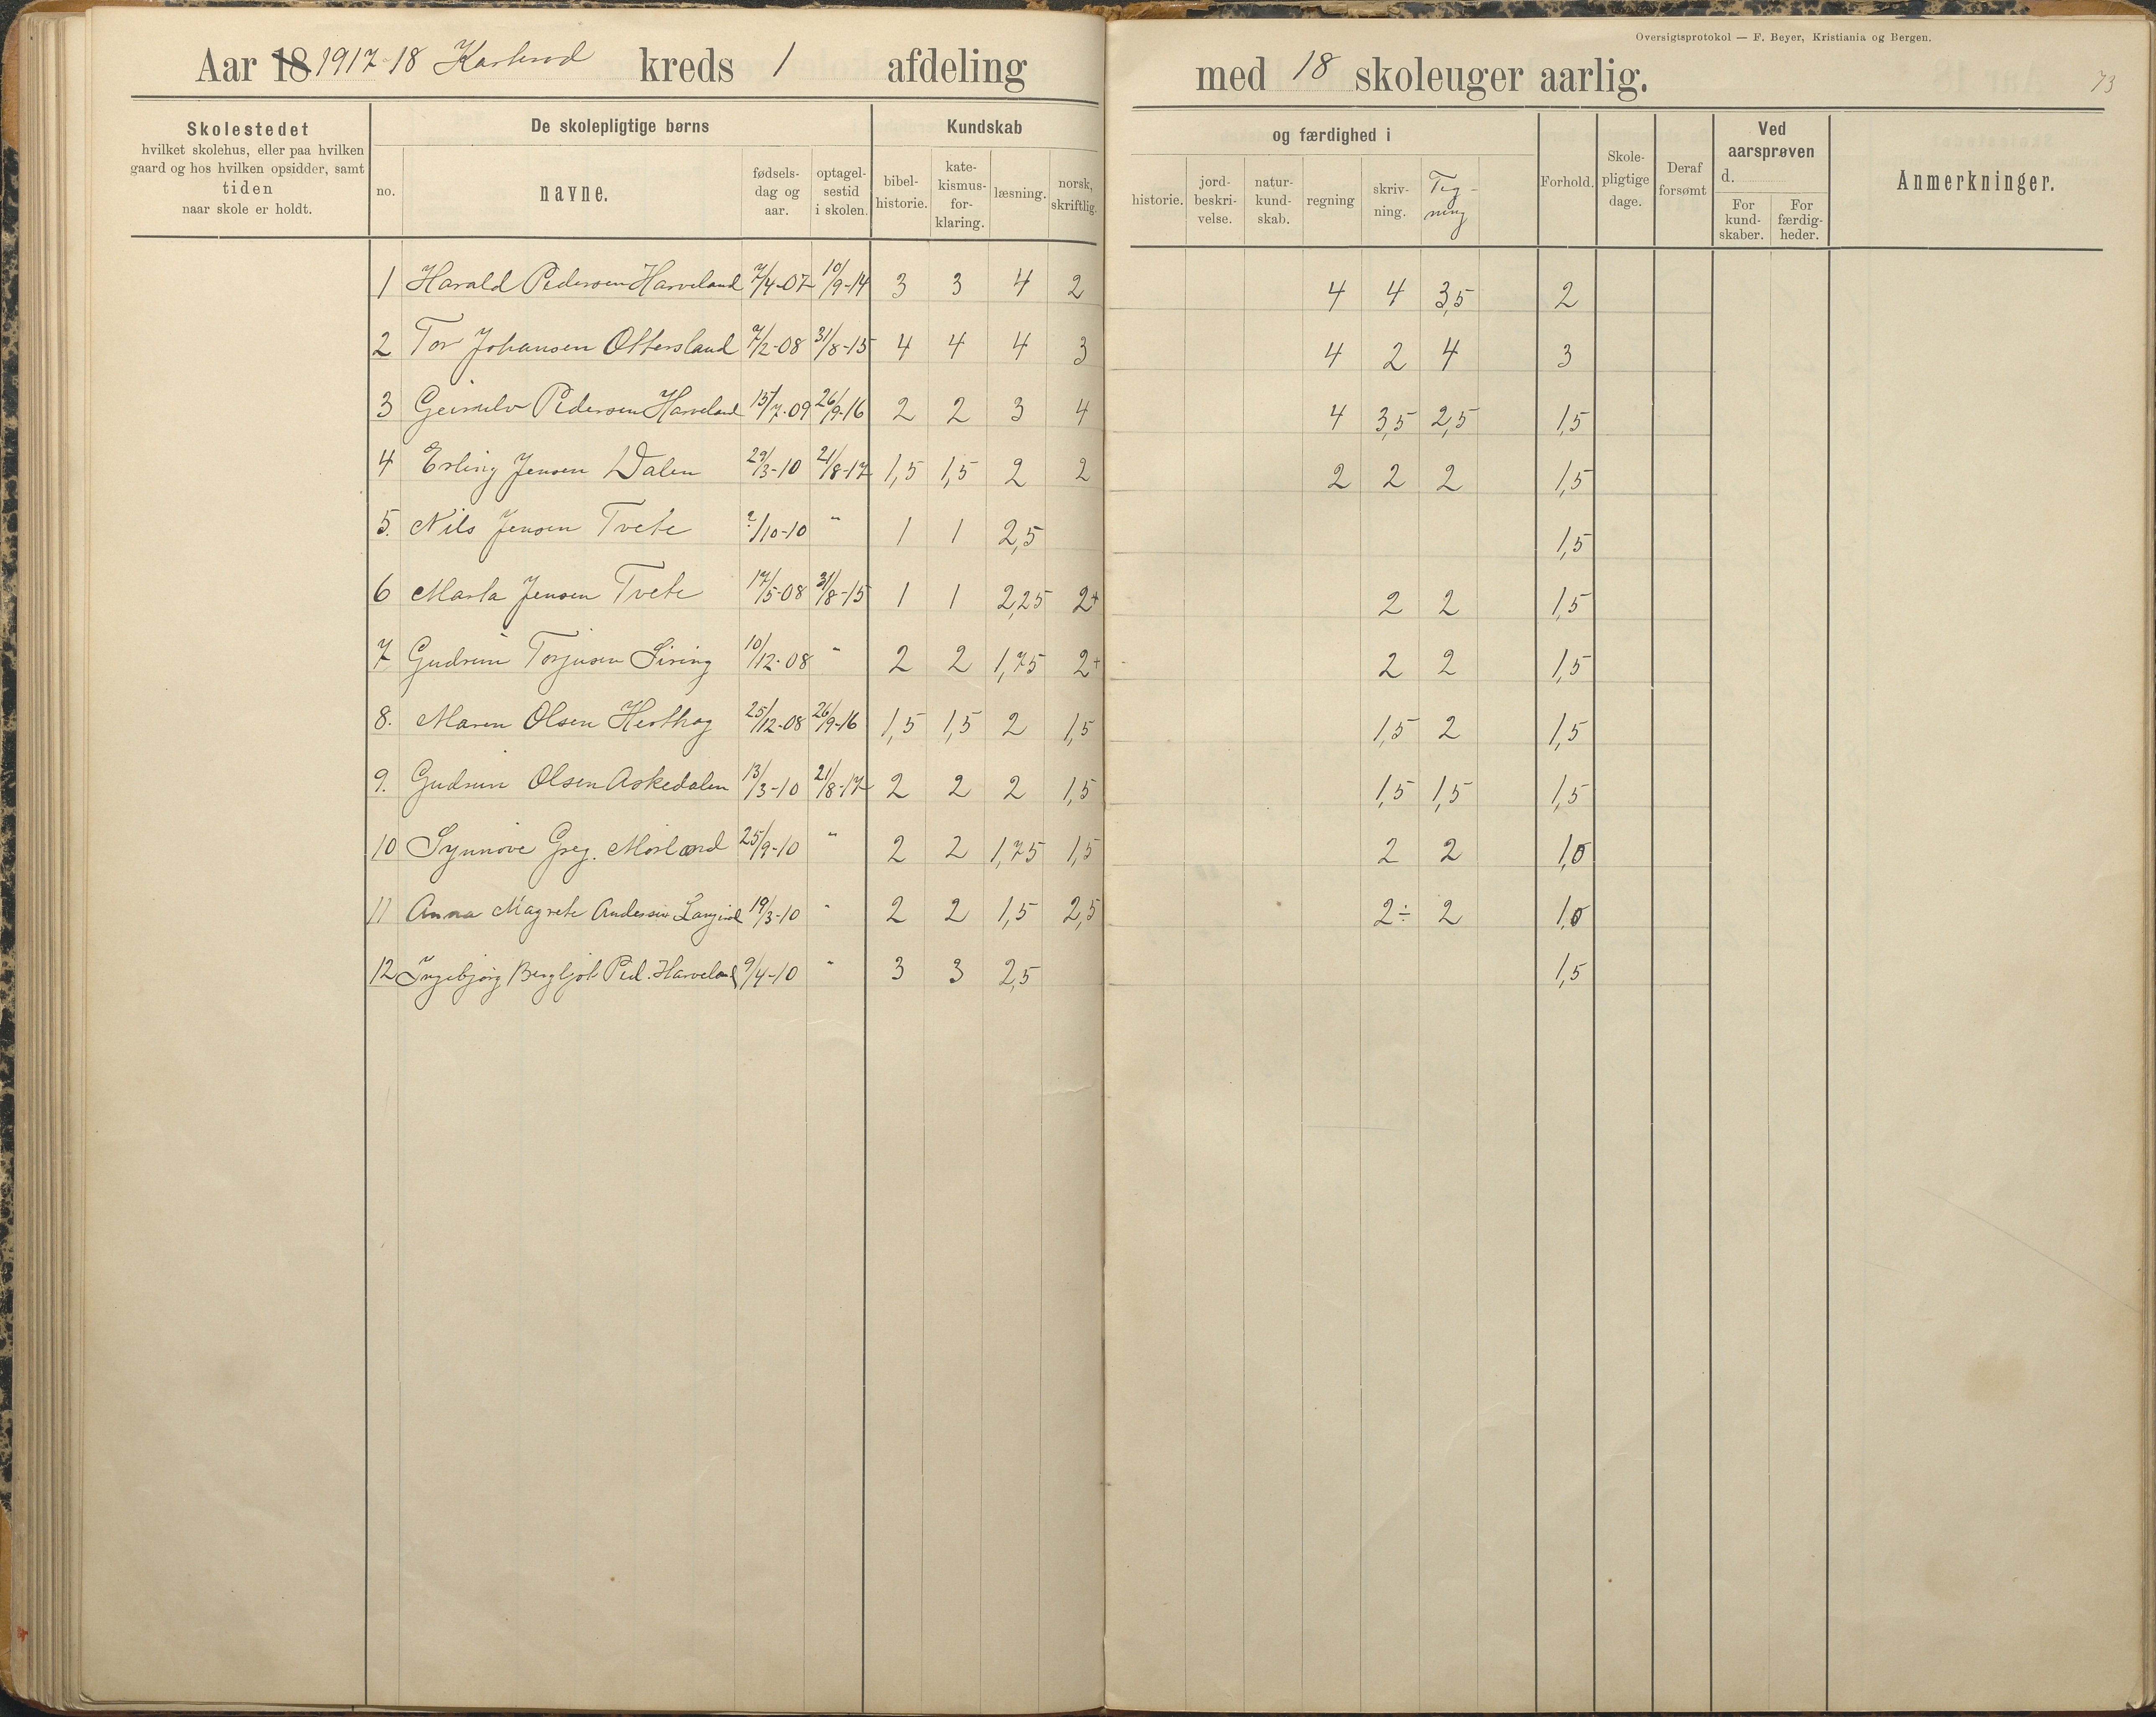 Oversigtsprotokol — F. Beyer, Kristiania og Bergen.
Aar 18 1917-18 kreds 1 afdeling med 18 skoleuger aarlig. 73
Skolestedet
hvilket skolehus, eller paa hvilken
gaard og hos hvilken opsidder, samt
tiden
naar skole er holdt.
De skolepligtige børns
no.
navne.
fødsels-
dag og
aar.
optagel-
sestid
i skolen.
Kundskab
bibel-
historie.
kate-
kismus-
for-
klaring.
læsning.
norsk,
skriftlig.
og færdighed i
historie.
jord-
beskri-
velse.
natur-
kund-
skab.
regning
skriv-
ning.
Teg-
ning
Forhold.
Skole-
pligtige
dage.
Deraf
forsømt
Ved
aarsprøven
d.
For
kund-
skaber.
For
færdig-
heder.
Anmerkninger.
1 Harald Pedersen Harveland 7/4-07 10/9-14 3 3 4 2 4 4 3,5 2
2 Tor Johansen Ottersland 7/2-08 31/8-15 4 4 4 3 4 2 4 3
3 Pedersen Harveland 15/7-09 26/9-16 2 2 3 4 4 3,5 2,5 1,5
4 Erling Jensen Dalen 29/3-10 21/8-17 1,5 1,5 2 2 2 2 2 1,5
5. Nils Jensen Tvete 2/10-10 " 1 1 2,5 1,5
6 Marta Jensen Tvete 17/5-08 31/8-15 1 1 2,25 2+ 2 2 1,5
7 Gudrun Torjusen Siring 10/12-08 " 2 2 1,75 2+ 2 2 1,5
8. Maren Olsen 25/12-08 26/9-16 1,5 1,5 2 1,5 1,5 2 1,5
9. Gudrun Olsen Askedalen 13/3-10 21/8-17 2 2 2 1,5 1,5 1,5 1,5
10 Synnøve Greg. Morland 25/9-10 " 2 2 1,75 1,5 2 2 1,0
11 Anna Magrete Andersen 19/3-10 " 2 2 1,5 2,5 2÷ 2 1,0
12 Ingebjørg Bergljot Ped. Harveland 9/4-10 " 3 3 2,5 1,5